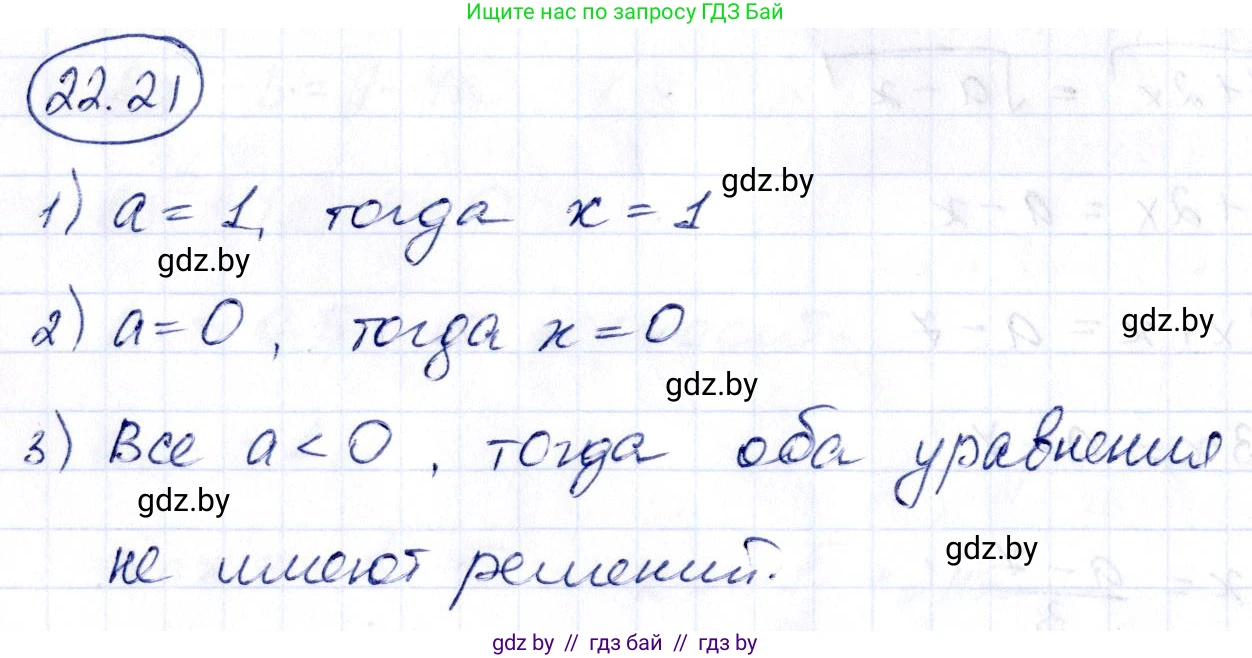 Ищите нас по запросу ГДЗ Бай
22.21
1) a = 1, тогда x = 1
gdz.by
gdz.by
2) a = 0, тогда x = 0
gdz.by
gdz.by
3) Все a < 0, тогда оба уравнения
gdz.by
не имеют решений.
gdz.by
gdz by // гдз бай // гдз by